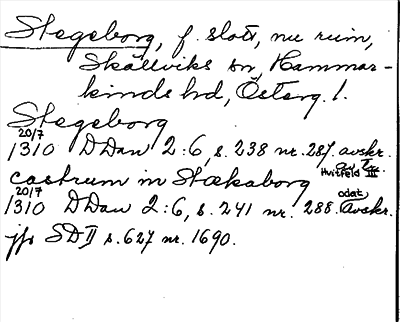 Stegeborg, f. slott, nu ruin,
Skällviks sn, Hammar-
kinds hd, Österg. l.
Stegeborg
1310 20/7 DDan 2:6, s. 238 nr. 287. avskr.
av Hvitfeld III
castrum in Stækaborg
1310 20/7 DDan 2:6, s. 241 nr. 288. odat. avskr.
jfr SD II s. 627 nr. 1690.